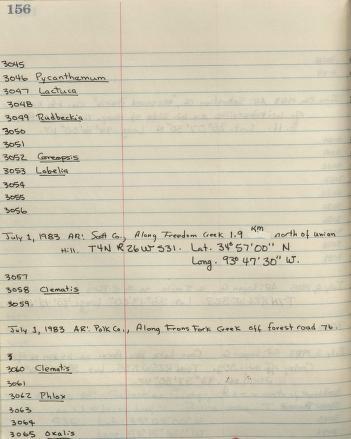 156
3045
3046 Pycanthemum
3047 Lactuca
3048
3049 Rudbeckia
3050
3051
3052 Coreopsis
3053 Lobelia
3054
3055
3056
July 1, 1983 AR: Scott Co., Along Freedom Creek 1.9 Km north of union
Hill. T4N R26W S31. Lat. 34°57'00" N
Long. 93°47'30" W.
3057
3058 Clematis
3059
July 1, 1983 AR: Polk Co., Along Frans Fork Creek off forest road 76.
3060 Clematis
3061
3062 Phlox
3063
3064
3065 Oxalis